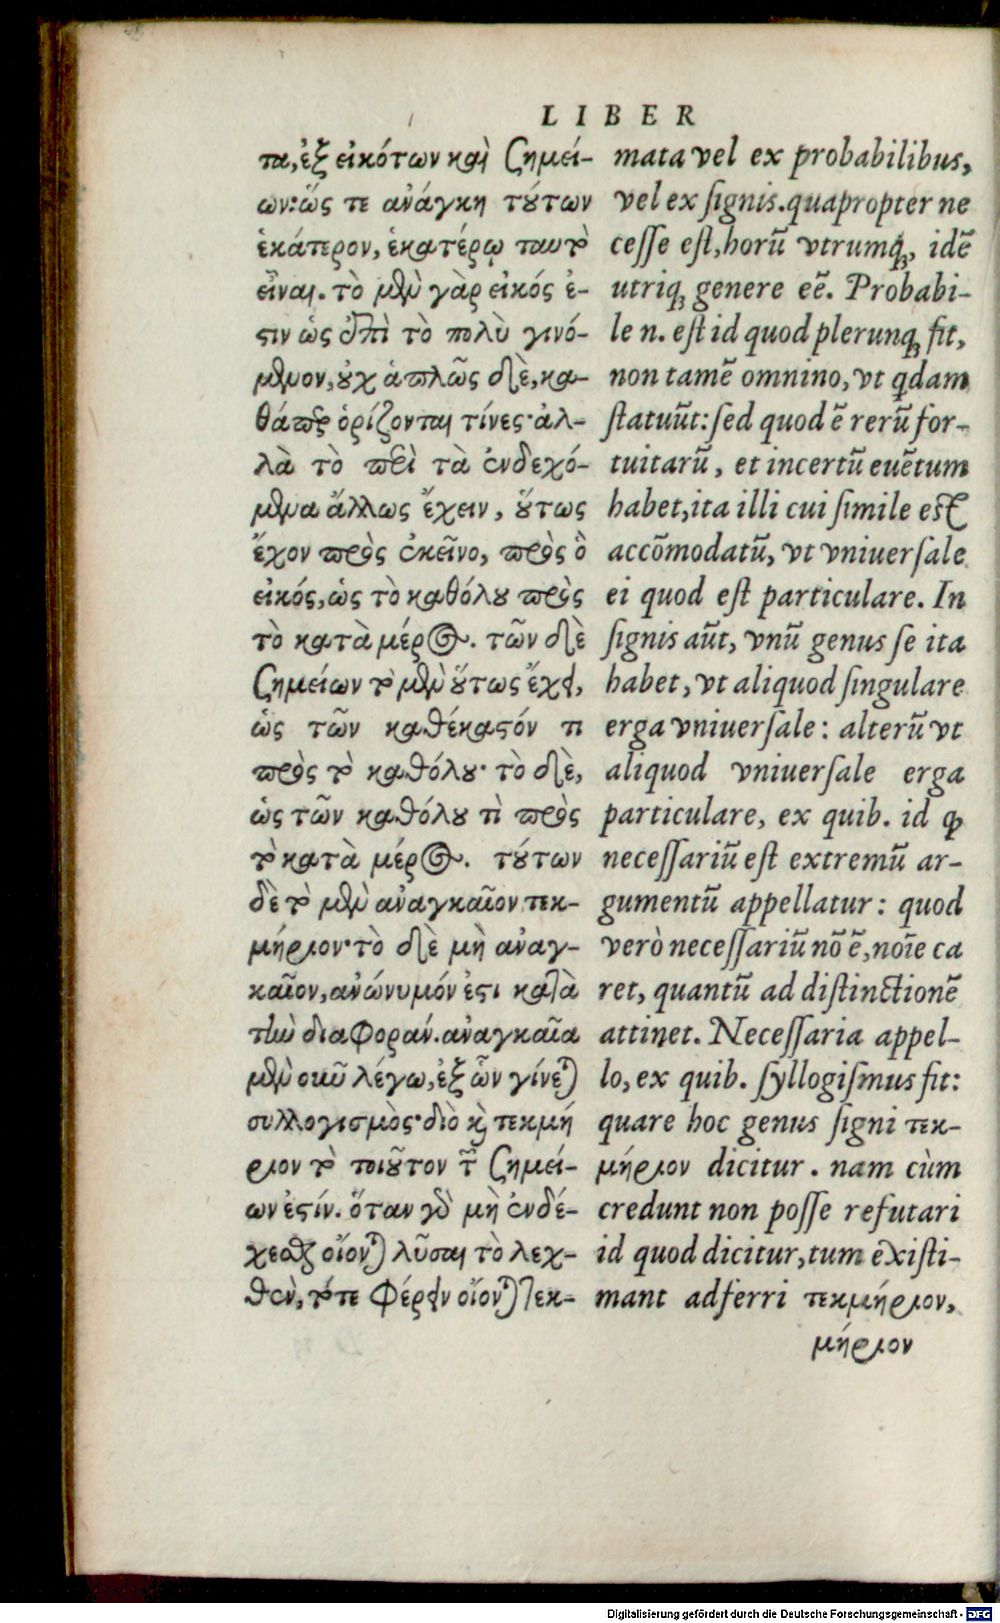 LIBER
τα, ἐξ εἰκότων καὶ ϛημεί-
ων: ὥς τε ἀνάγκη τȣ́των
ἑκάτερον, ἑκατέρῳ ταυτὸ
εἶναι. τὸ μὲν γὰρ εἰκός ἐ-
ϛιν ὡς ἐπὶ τὸ πολὺ γινό-
μενον, ȣ̓χ ἁπλῶς δὲ, κα-
θάπερ ὁρίζονται τίνες· ἀλ-
λὰ τὸ περὶ τὰ ἐνδεχό-
μενα ἄλλως ἔχειν, ȣ̔́τως
ἔχον πρὸς ἐκεῖνο, πρὸς ὃ
εἰκός, ὡς τὸ καθόλȣ πρὸς
τὸ κατὰ μέρος. τῶν δὲ
ϛημείων τὸ μὲν ȣ̔́τως ἔχει,
ὡς τῶν καθέκαϛόν τι
πρὸς τὸ καθόλȣ· τὸ δὲ,
ὡς τῶν καθόλȣ τὶ πρὸς
τὸ κατὰ μέρος. τȣ́των
δὲ τὸ μὲν ἀναγκαῖον τεκ-
μήριον· τὸ δὲ μὴ ἀναγ-
καῖον, ἀνώνυμόν ἐϛι κατὰ
τὴν διαφοράν. ἀναγκαῖα
μὲν οὖν λέγω, ἐξ ὧν γίνεται
συλλογισμὸς· διὸ καὶ τεκμή
ριον τὸ τοιȣ͂τον τῶν ϛημεί-
ων ἐϛίν. ὅταν γὰρ μὴ ἐνδέ-
χεσθαι οἴονται λῦσαι τὸ λεχ-
θὲν, τότε φέρειν οἴονται τεκ-
mata vel ex probabilibus,
vel ex ſignis. quapropter ne
ceſſe eſt, horū vtrumq́;, idē
utriq; genere eē. Probabi-
le n. eſt id quod plerunq; fit,
non tamē omnino, vt qdam
ſtatuūt: ſed quod ē rerū for-
tuitarū, et incertū euētum
habet, ita illi cui ſimile eſt
accōmodatū, vt vniuerſale
ei quod eſt particulare. In
ſignis aūt, vnū genus ſe ita
habet, vt aliquod ſingulare
erga vniuerſale: alterū vt
aliquod vniuerſale erga
particulare, ex quib. id ꝙ
neceſſariū eſt extremū ar-
gumentū appellatur: quod
verò neceſſariū nō ē, noīe ca
ret, quantū ad diſtinctionē
attinet. Neceſſaria appel-
lo, ex quib. ſyllogiſmus fit:
quare hoc genus ſigni τεκ-
μήριον dicitur. nam cùm
credunt non poſſe refutari
id quod dicitur, tum exiſti-
mant adferri τεκμήριον,
μήριον
Digitalisierung gefördert durch die Deutsche Forschungsgemeinschaft - DFG